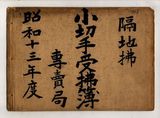 隔地拂
小切手受拂簿
專賣局
昭和十三年度